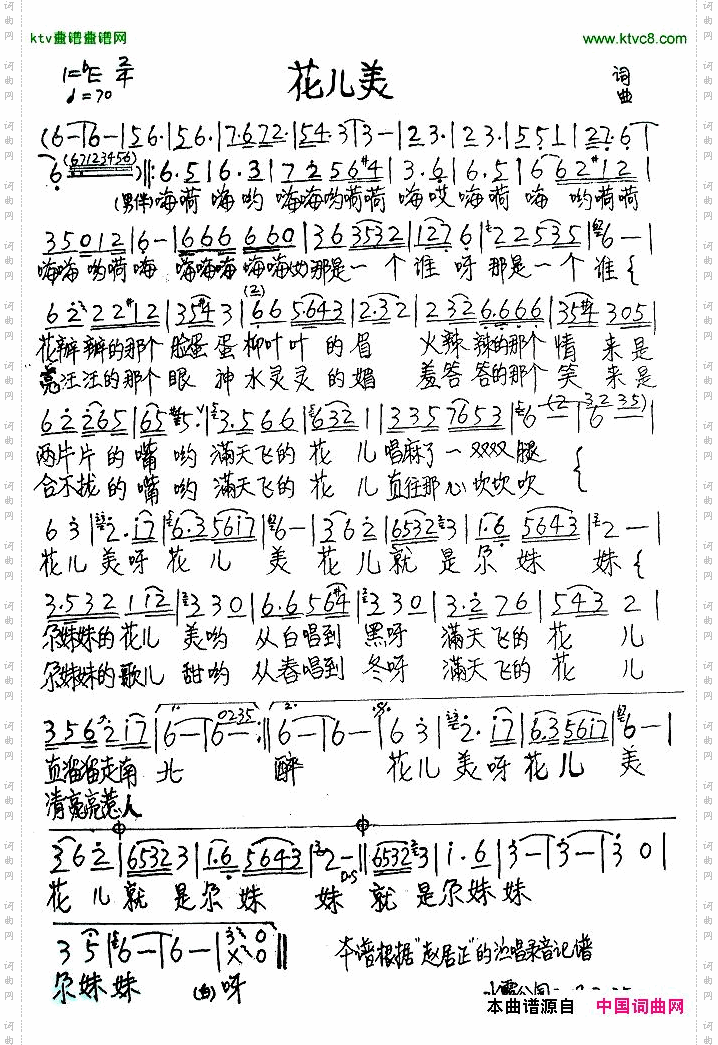 ktv曲谱曲谱网
www.ktvc8.com
花儿美
词
曲
1=♭E 2/4
♩=70
(6-|6-|56·|56·|7·672·|54·3|3-|23·|23·|551|27·6|
6(67123456)‖:6·5|6·3|72564|3·6|6·5|66212|
(男伴)嗨嗬 嗨哟 嗨嗨哟嗬嗬 嗨哎 嗨嗬 嗨 哟嗬嗬
35012|6-|666 660|363532|1276|22535|6-|
嗨嗨 哟嗬嗨 嗨嗨嗨 嗨嗨 那是一 个谁 呀 那是一 个 谁
622212|3543|665643|2·32|2326·666|354305|
花瓣瓣的那个 脸蛋蛋 柳叶叶 的眉 火辣辣的那个 情 来是
亮汪汪的那个 眼 神 水灵灵 的媚 羞答答的那个 笑 来是
62265|655·|3·566|6321|3357653|6-|6-|
两片片的 嘴 哟 满天飞的 花 儿 唱麻了一双双 腿
合不拢的 嘴 哟 满天飞的 花 儿 直往那心坎坎 吹
63|2·17|6·35617|6-|362|65323|1·65643|2-|
花儿 美呀 花儿 美 花 儿 就 是 尕 妹 妹
3·532112|330|6·6564|330|3·276|5432|
尕妹妹的花儿 美哟 从白唱到 黑呀 满天飞的 花 儿
尕妹妹的歌儿 甜哟 从春唱到 冬呀 满天飞的 花 儿
356217|6-|6-0235:‖6-|6-|63|2·17|6·35617|6-|
直溜溜走南 北 醉 花儿 美呀 花儿 美
清亮亮惹人
362|65323|1·65643|2-‖65323|1·6|3-|3-|30|
D.S
花 儿 就 是尕 妹 妹 就 是尕 妹妹
35|6-|6-|3 0 X 0‖
尕妹 妹 (白)呀
本谱根据"赵居正"的演唱录音记谱
本曲谱源自 中国词曲网
词曲网